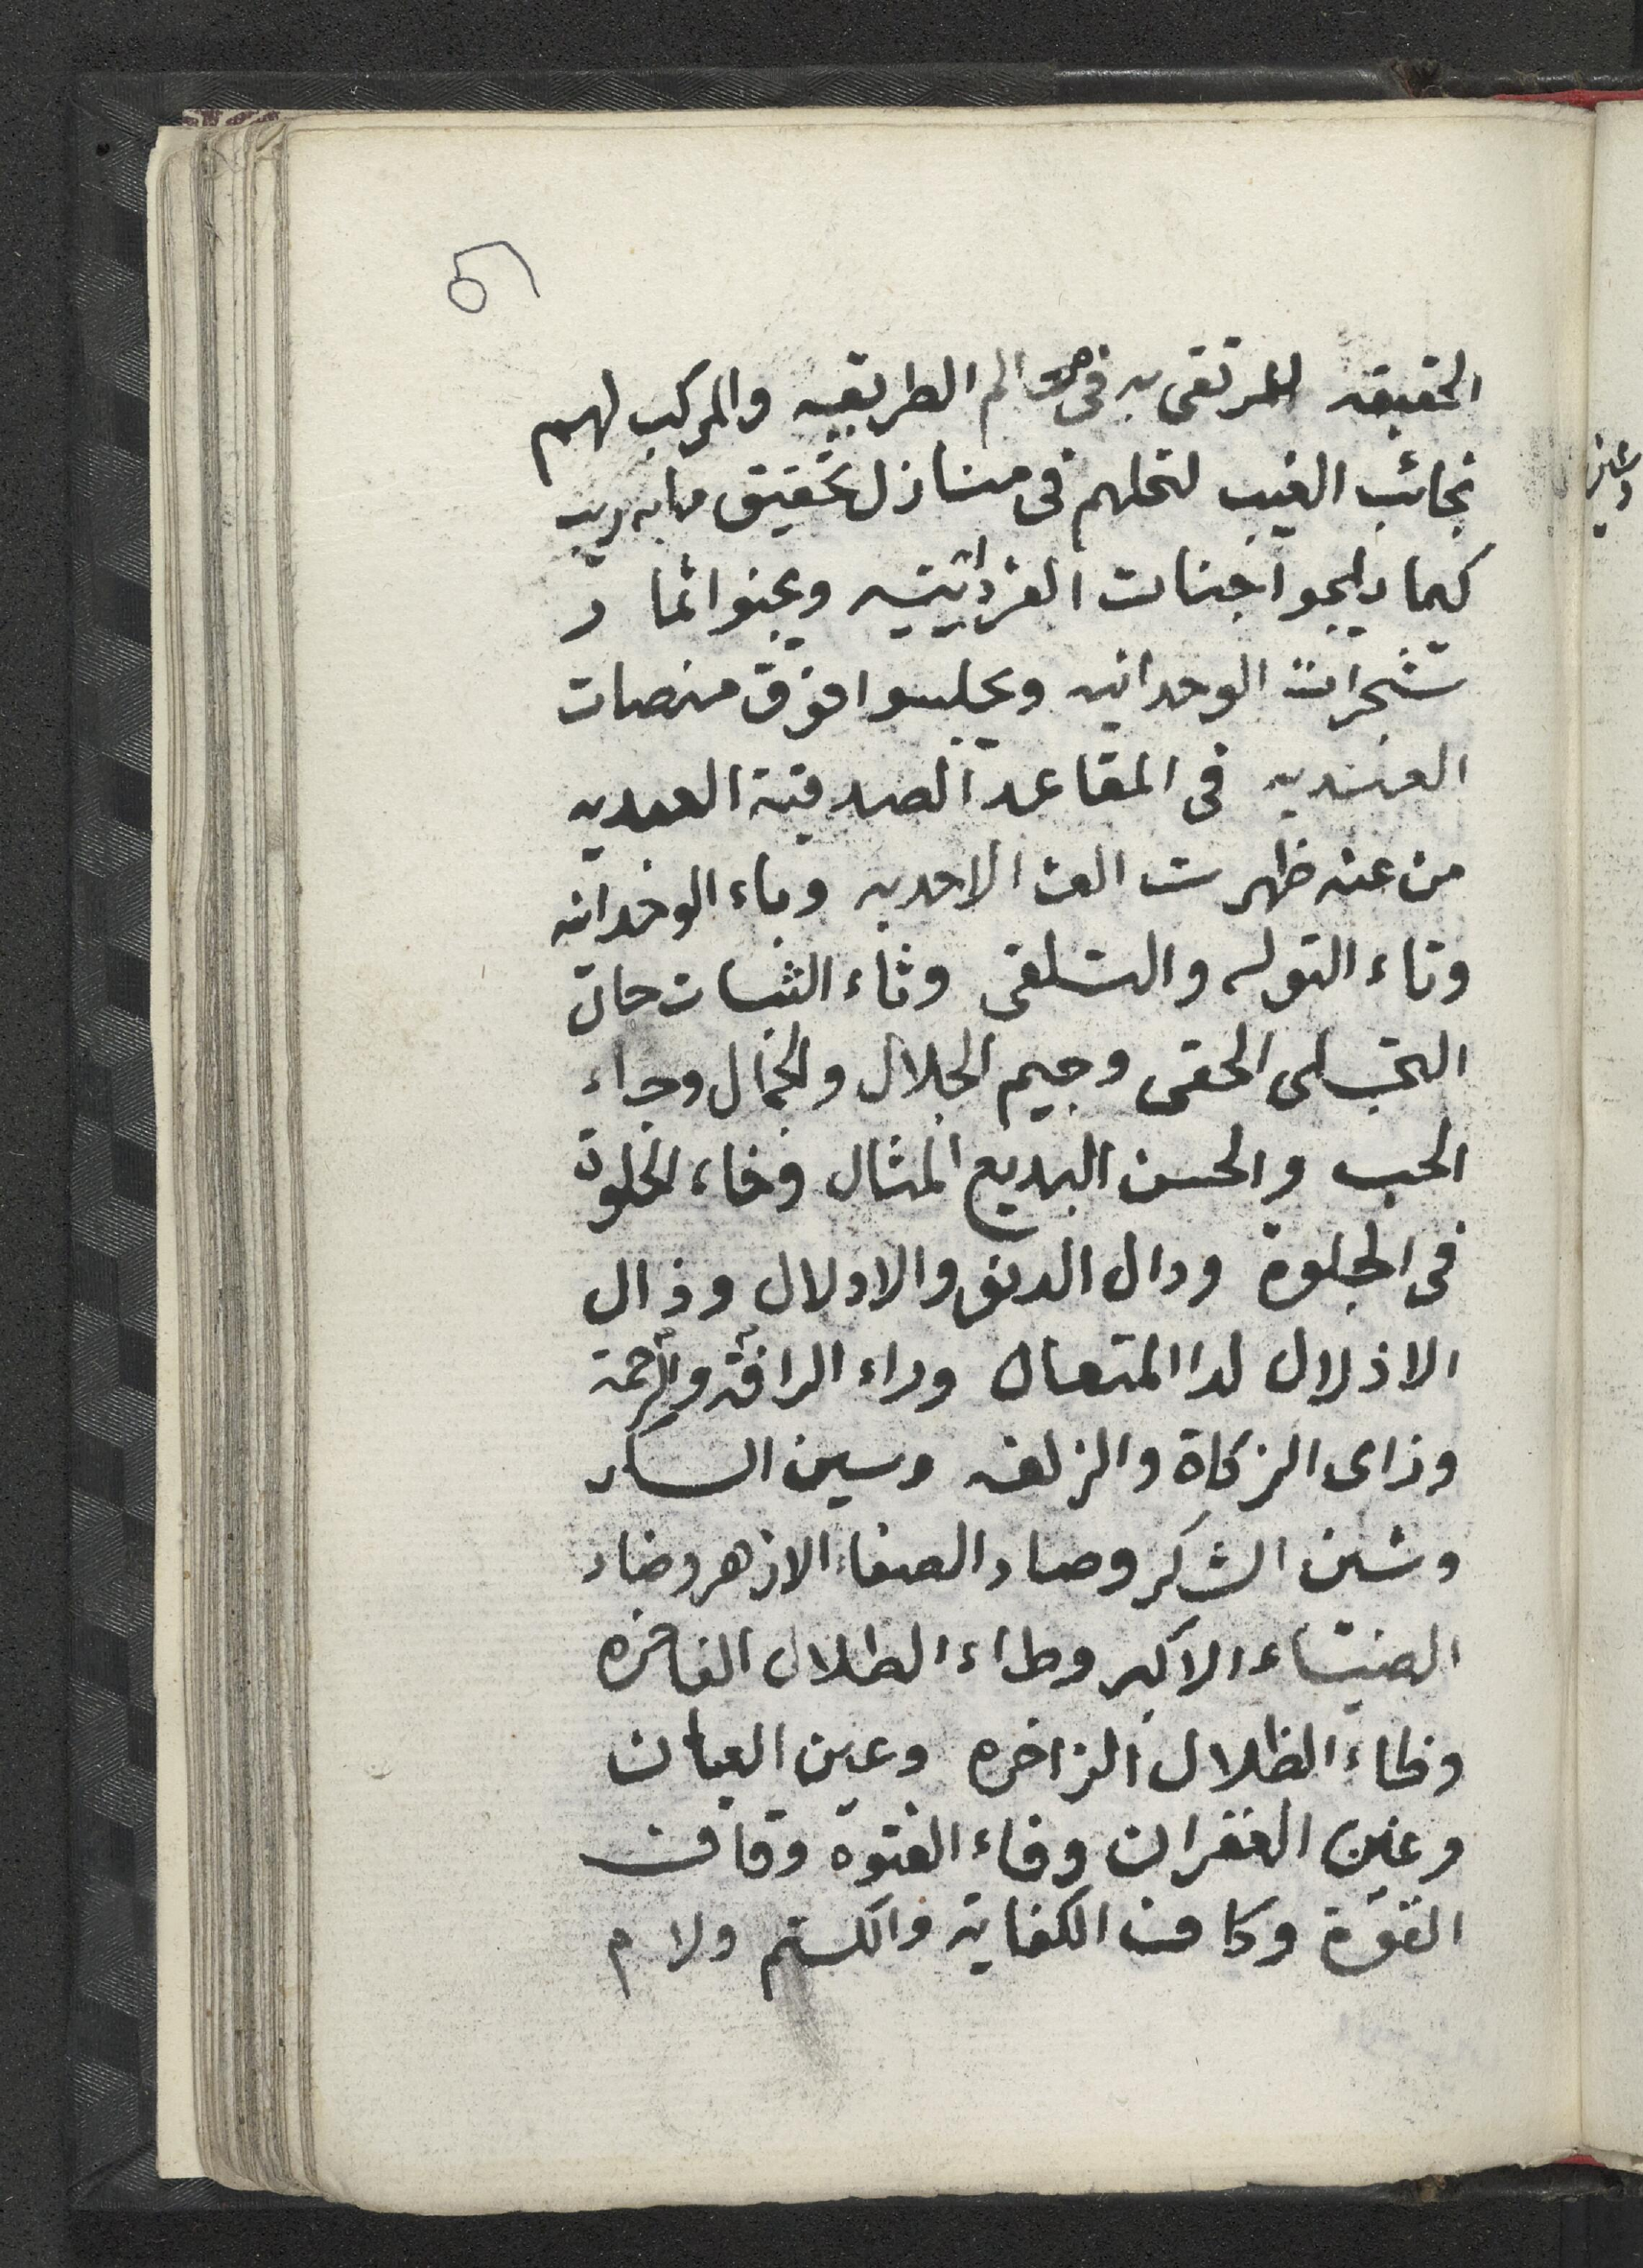 ٥٦
الحقيقه المرتقى به فى عوالم الطريقيه والمركب لهم
نجائب الغيب لتحلهم فى منازل تحقيق مابه ريب
كيما يلجوا جنات الفردانيتيه ويجنوا ثمار
شجرات الوحدانيه ويجلسوا فوق منصات
العنديه فى المقاعد الصدقية العهديه
من عنه ظهرت الف الاحديه وباء الوحدانيه
وتاء التوله والتلقى وثاء الثبات حال
التجلى الحقى وجيم الجلال والجمال وحاء
الحب والحسن البديع المثال وخاء الخلوة
فى الجلوة ودال الدنو والادلال وذال
الاذلال لدا المتعال وراء الرافة والرحمة
وزاى الزكاة والزلفه وسين السكر
وشين الشكر وصاد الصفاء الازهر وضاد
الضياء الاكبر وطاء الطلال الفاخره
وظاء الظلال الزاخره وعين العيان
وغين الغفران وفاء الفتوة وقاف
القوّة وكاف الكفاية والكتم ولام